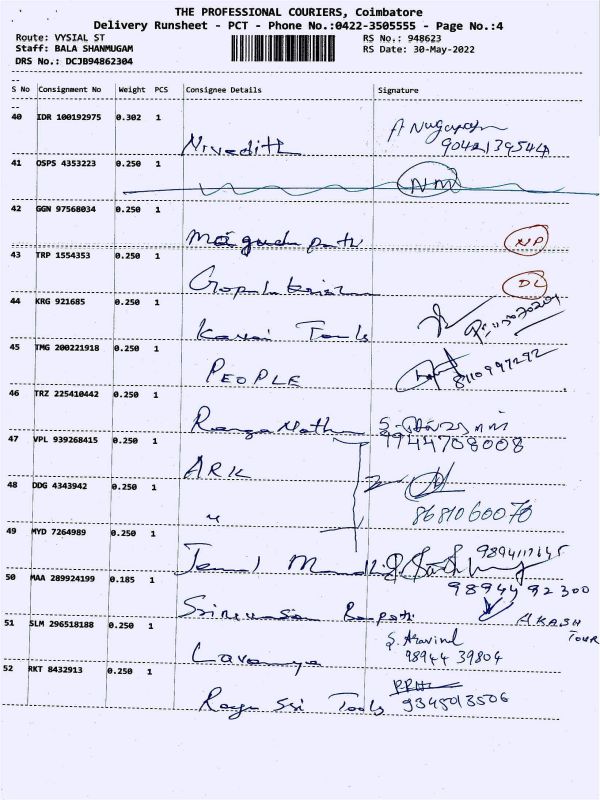 THE PROFESSIONAL COURIERS, Coimbatore
Delivery Runsheet - PCT - Phone No.:0422-3505555 - Page No.:4
Route: VYSIAL ST RS No.: 948623
Staff: BALA SHANMUGAM RS Date: 30-May-2022
DRS No.: DCJB94862304
S No Consignment No Weight PCS Consignee Details Signature
40 IDR 100192975 0.302 1
Nivedith 9042139544
41 OSPS 4353223 0.250 1 NM
42 GGN 97568034 0.250 1
NP
43 TRP 1554353 0.250 1
DL
44 KRG 921685 0.250 1
Tools
45 TMG 200221918 0.250 1
PEOPLE 8110997292
46 TRZ 225410442 0.250 1
Ranganathan 9944708008
47 VPL 939268415 0.250 1
ARK
48 DDG 4343942 0.250 1
" 8681060070
49 MYD 7264989 0.250 1
9894117645
50 MAA 289924199 0.185 1 9894492300
AKASH TOUR
51 SLM 296518188 0.250 1 S. Aravind
Lavanya 98944 39804
52 RKT 8432913 0.250 1
Tools 9345013506